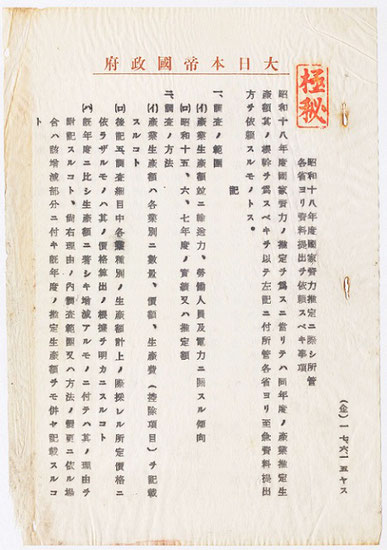 極秘
大日本帝國政府
(企)一七、六、一五、ヤス
昭和十八年度國家資力推定ニ際シ所管
各省ヨリ資料提出ヲ依頼スベキ事項
昭和十八年度國家資力ノ推定ヲ爲スニ當リテハ同年度ノ產業推定生
產額其ノ根幹ヲ爲スベキヲ以テ左記ニ付所管各省ヨリ至急資料提出
方ヲ依頼スルモノトス。
記
一、調査ノ範圍
(イ)產業生產額竝ニ輸送力、勞働人員及電力ニ關スル傾向
(ロ)昭和十五、六、七年度ノ實績又ハ推定額
二、調査ノ方法
(イ)產業生產額ハ各業別ニ數量、價額、生產費(控除項目)ヲ記載
スルコト
(ロ)後記五、調査細目中各業種別ノ生產額計上ノ際採レル所定價格ニ
依ラザルモノハ其ノ價格算出ノ根據ヲ明カニスルコト
(ハ)既年度ニ比シ生產額ニ著シキ增減アルモノニ付テハ其ノ理由ヲ
附記スルコト、尚右理由ノ內調査範圍又ハ方法ノ變更ニ依ル場
合ハ該增減部分ニ付キ既年度ノ推定生產額ヲモ併セ記載スルコ
ト